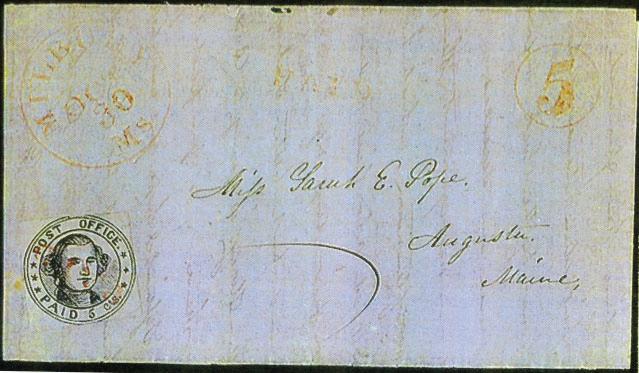 MILLBURY
Oct
30
Ms
PAID
5
Miss Sarah E. Pope.
Augusta.
Maine,
POST OFFICE.
PAID 5 cts.